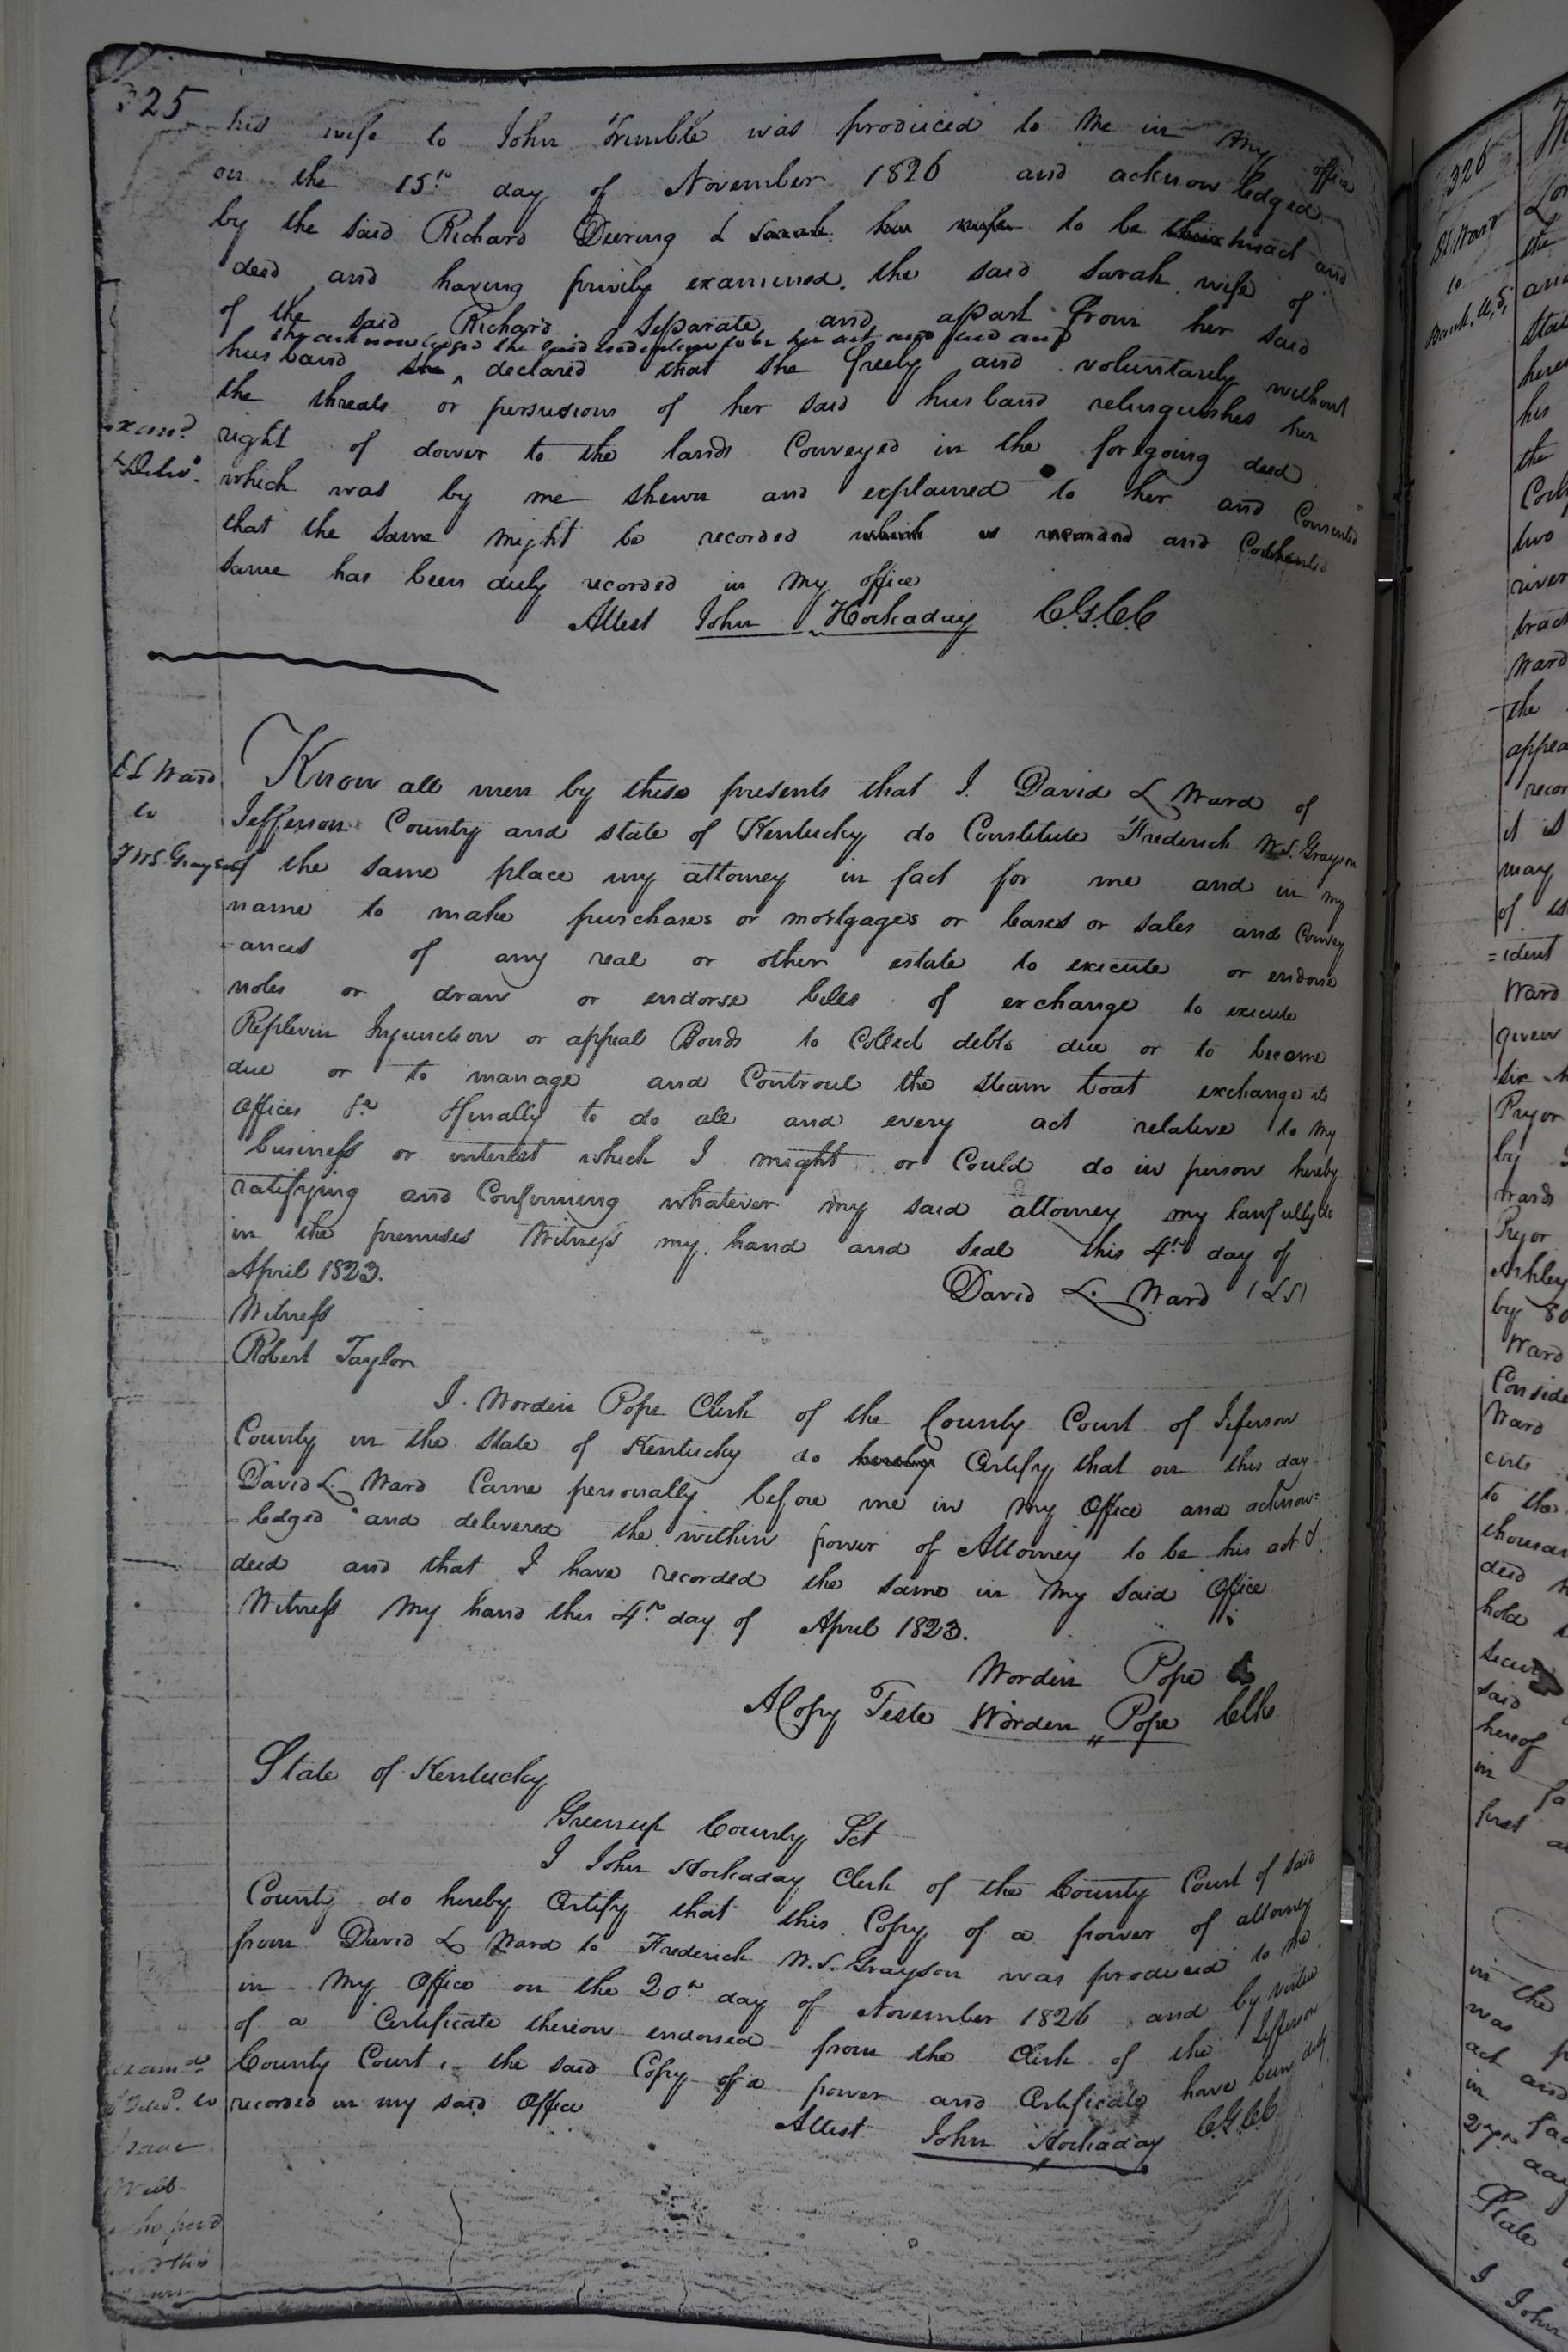 325
his wife to John Trimble was produced to me in my office
on the 15th day of November 1826 and acknowledged
by the said Richard Deering & Sarah his wife to be their hand act and
deed and having privily examined the said Sarah wife of
of the said Richard separate and apart from her said
she acknowledged the said indenture to be her act and deed and
husband she ^ declared that she freely and voluntarely without
the threats or persusions of her said husband relinquishes her
Exam.d
right of dower to the lands Conveyed in the forgoing deed
& Deliv.d
which was by me shewn and explained to her and Consented
that the same might be recorded which is recorded and
same has been duly recorded in my office
Attest John Hockaday C.G.C.C
D L Ward
to
F W S. Grayson
Know all men by these presents that I David L Ward of
Jefferson County and state of Kentucky do Constitute Frederick W. S. Grayson
of the same place my attorney in fact for me and in my
name to make purchases or mortgages or leases or sales and Convey
-ances of any real or other estate to execute or endorse
notes or draw or endorse bills of exchange to execute
Replevin Injunction or appeal Bonds to Collect debts due or to become
due or to manage and Controul the steam boat exchange its
Offices &c & finally to do all and every act relative to my
business or interest which I might or Could do in person hereby
ratifying and Confirming whatever my said attorney my lawfully do
in the premises Witness my hand and seal this 4th day of
April 1823.
David L. Ward (LS)
Witness
Robert Taylor
I Worden Pope Clerk of the County Court of Jefferson
County in the state of Kentucky do hereby Certify that on this day
David L. Ward Came personally before me in my Office and acknow=
-ledged and delivered the within power of Attorney to be his act &
deed and that I have recorded the same in my said Office
Witness my hand this 4th day of April 1823.
Worden Pope
A Copy Teste Worden Pope Clk
State of Kentucky
Greenup County Sct
I John Hockaday Clerk of the County Court of said
County do hereby Certify that this Copy of a power of attorney
from David L Ward to Frederick W. S. Grayson was produced to me
in my Office on the 20th day of November 1826 and by virtue
of a Certificate thereon endorsed from the Clerk of the Jefferson
Exam.d
County Court, the said Copy of a power and Certificate have been duly
& Deliv.d to
recorded in my said Office
Attest John Hockaday C.G.C.C
Isaac
Webb
who paid
326
D L Ward
to
Bank, U, S,
the
and
state
here
his
the
two
river
tract
Ward
the
appea
recor
it is
may
of
=ident
Ward
given
six
Pryor
by
wards
Pryor
Ashley
by 80
Ward
Conside
Ward
to the
thousan
deed
hold
secur
said
hereof
in fa
first
in the
was
act and
in
27th day
State
I John